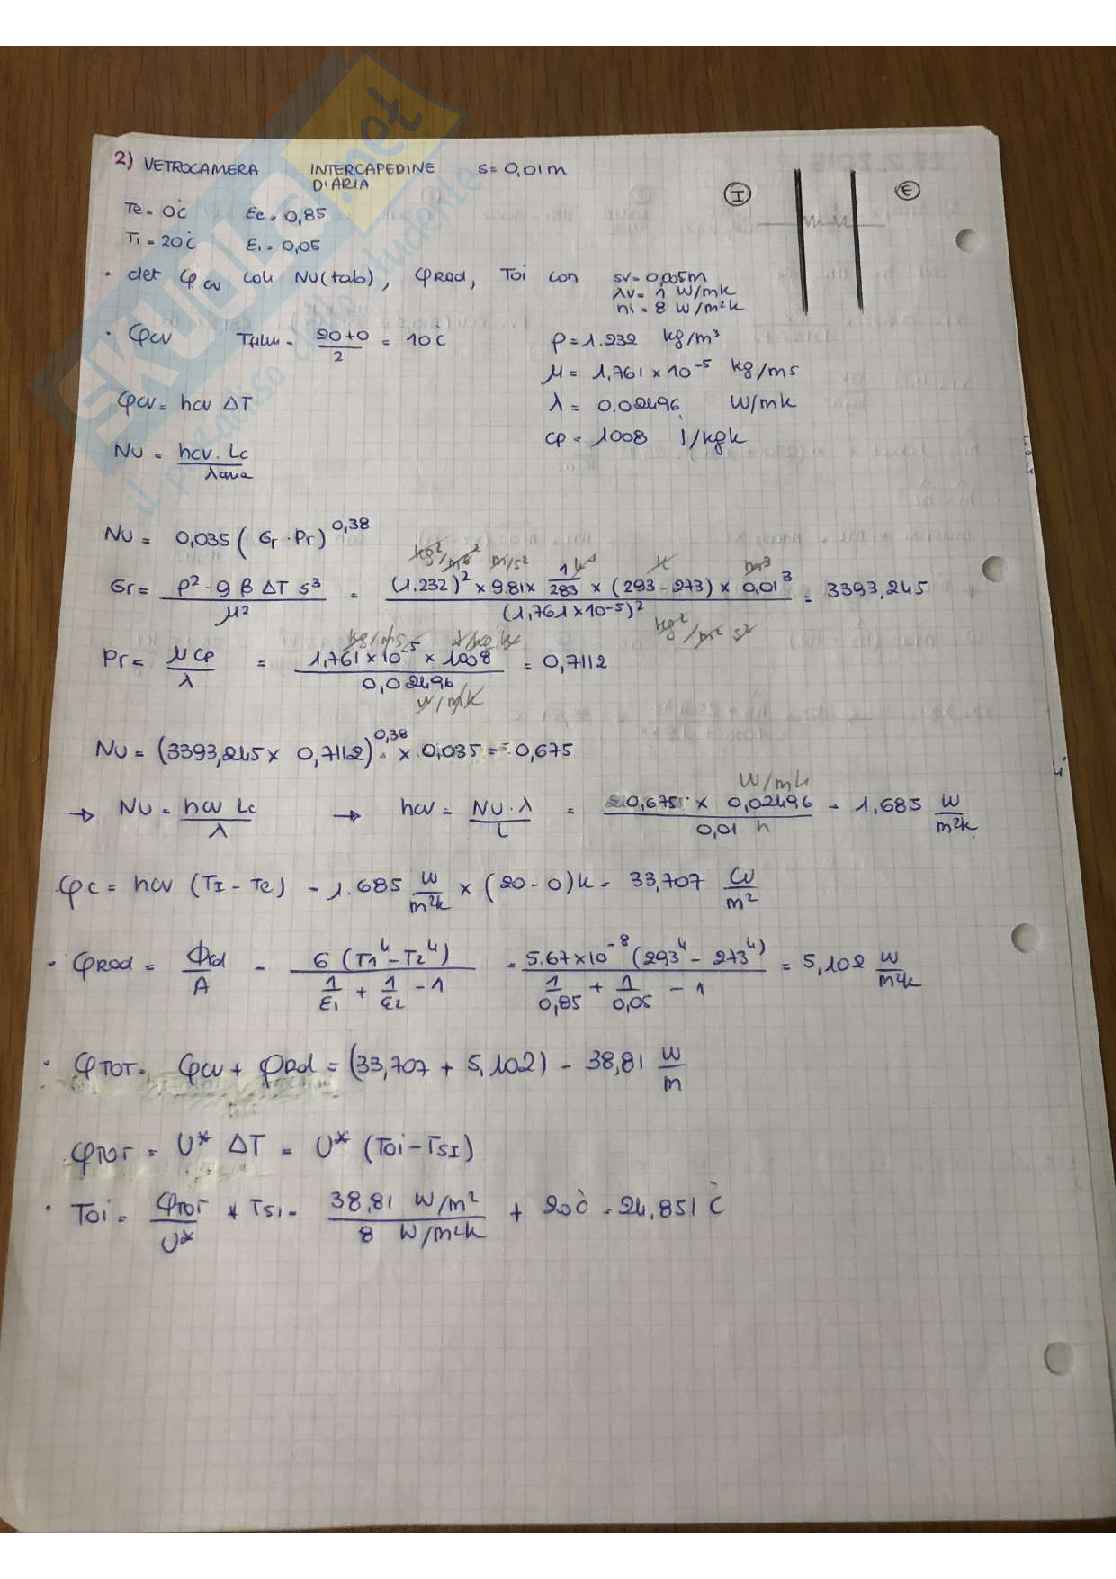 2) VETROCAMERA INTERCAPEDINE D'ARIA s= 0,01m
Te = 0°C Ee = 0,85
Ti = 20°C Ei = 0,05
I E
· det φcv con NU(tab), φRad, Toi con sv= 0,005m
λv= 1 W/mk
hi = 8 W/m²k
· φcv Tfilm = 20+0/2 = 10°C ρ = 1.232 kg/m³
μ = 1,761 × 10⁻⁵ kg/ms
φcv = hcv ΔT λ = 0.02496 W/mk
cp = 1008 J/kgk
NU = hcv . Lc/λaria
NU = 0,035 ( Gr · Pr)^0,38
Gr = ρ² · g β ΔT s³/μ² = (1.232)² × 9.81 × 1/283 × (293 - 273) × 0,01³/(1,761×10⁻⁵)² = 3393,245
Pr = μ cp/λ = 1,761 × 10⁻⁵ × 1008/0,02496 W/mK = 0,7112
NU = (3393,245 × 0,7112)^0,38 × 0.035 = 0,675
→ NU = hcv Lc/λ → hcv = NU · λ/L = 0,675 × 0,02496 W/mk/0,01 = 1.685 W/m²k
φc = hcv (TI - Te) = 1.685 W/m²k × (20 - 0)k = 33,707 W/m²
· φRad = Φrd/A = σ (T1⁴ - T2⁴)/1/ε1 + 1/ε2 - 1 = 5.67×10⁻⁸ (293⁴ - 273⁴)/1/0,85 + 1/0,05 - 1 = 5,102 W/m²k
· φTOT = φcv + φRad = (33,707 + 5,102) = 38,81 W/m
φTOT = U* ΔT = U* (Toi - TSI)
· Toi = φTOT/U* + Tsi = 38,81 W/m²/8 W/m²k + 20°C = 24,851°C
SKUOLA.net